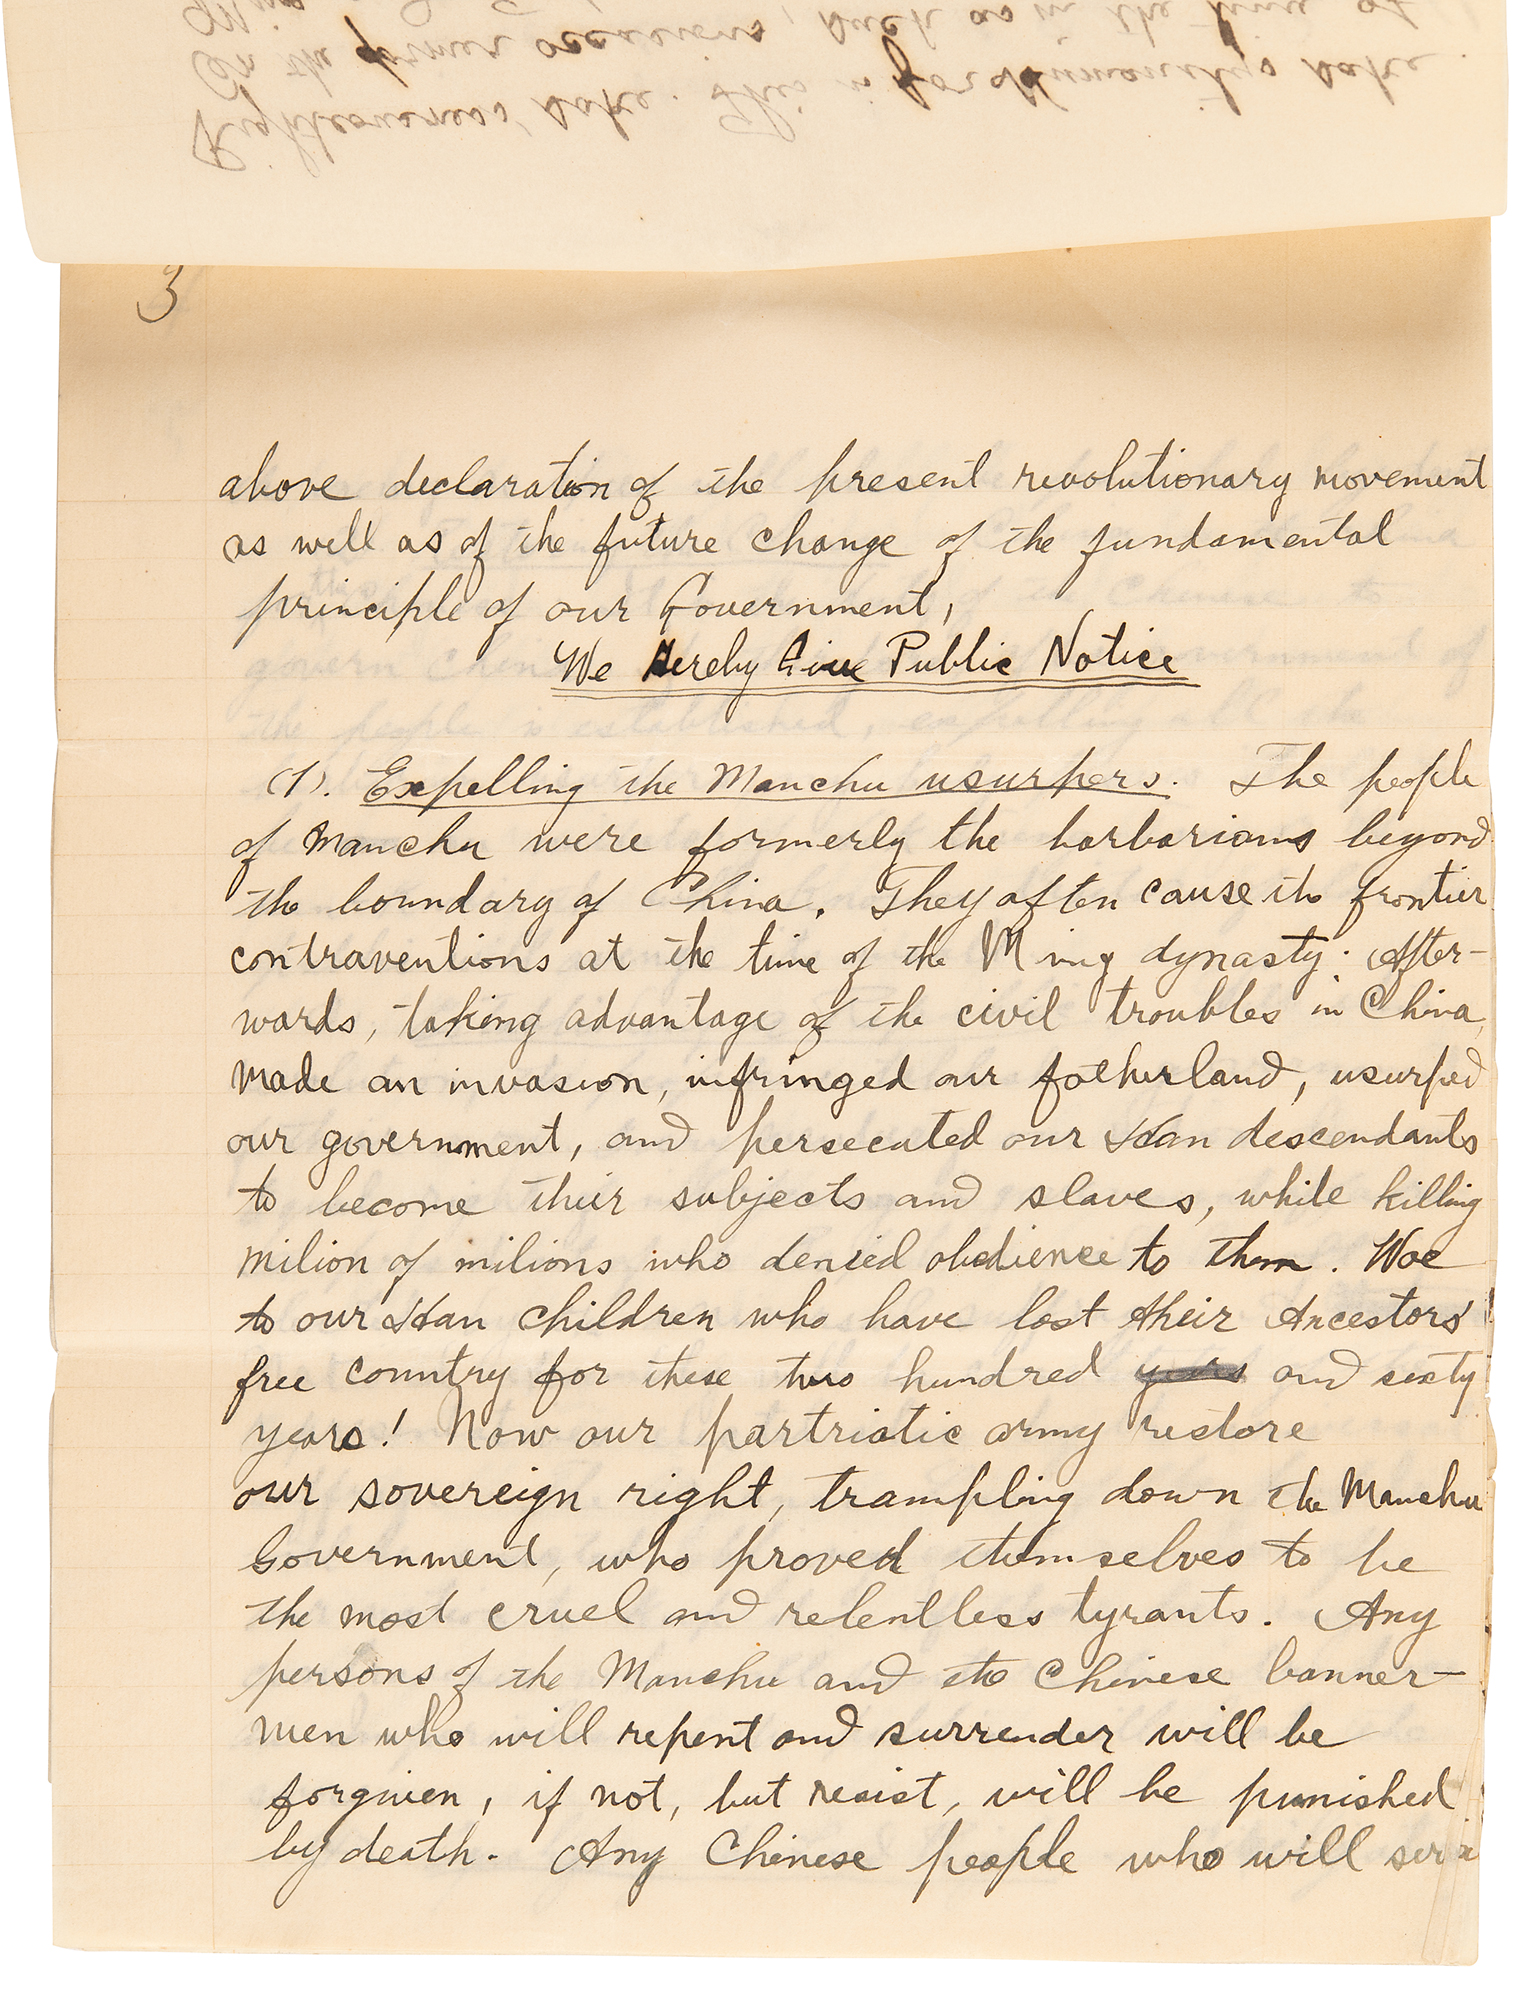 Righteousness' sake. This is for Humanity's sake.
On the former occasions, such as in the time of
3
above declaration of the present revolutionary movement
as well as of the future change of the fundamental
principle of our Government,
We Hereby Give Public Notice
(1). Expelling the Manchu usurpers. The people
of Manchu were formerly the barbarians beyond
the boundary of China. They often cause the frontier
contraventions at the time of the Ming dynasty. After-
wards, taking advantage of the civil troubles in China,
made an invasion, infringed our fatherland, usurped
our government, and persecuted our Han descendants
to become their subjects and slaves, while killing
milion of milions who denied obedience to them. Woe
to our Han children who have lost their Ancestors'
free country for these two hundred years and sixty
years! Now our partriatic army restore
our sovereign right, trampling down the Manchu
Government, who proved themselves to be
the most cruel and relentless tyrants. Any
persons of the Manchu and the Chinese banner-
men who will repent and surrender will be
forgiven, if not, but resist, will be punished
by death. Any Chinese people who will